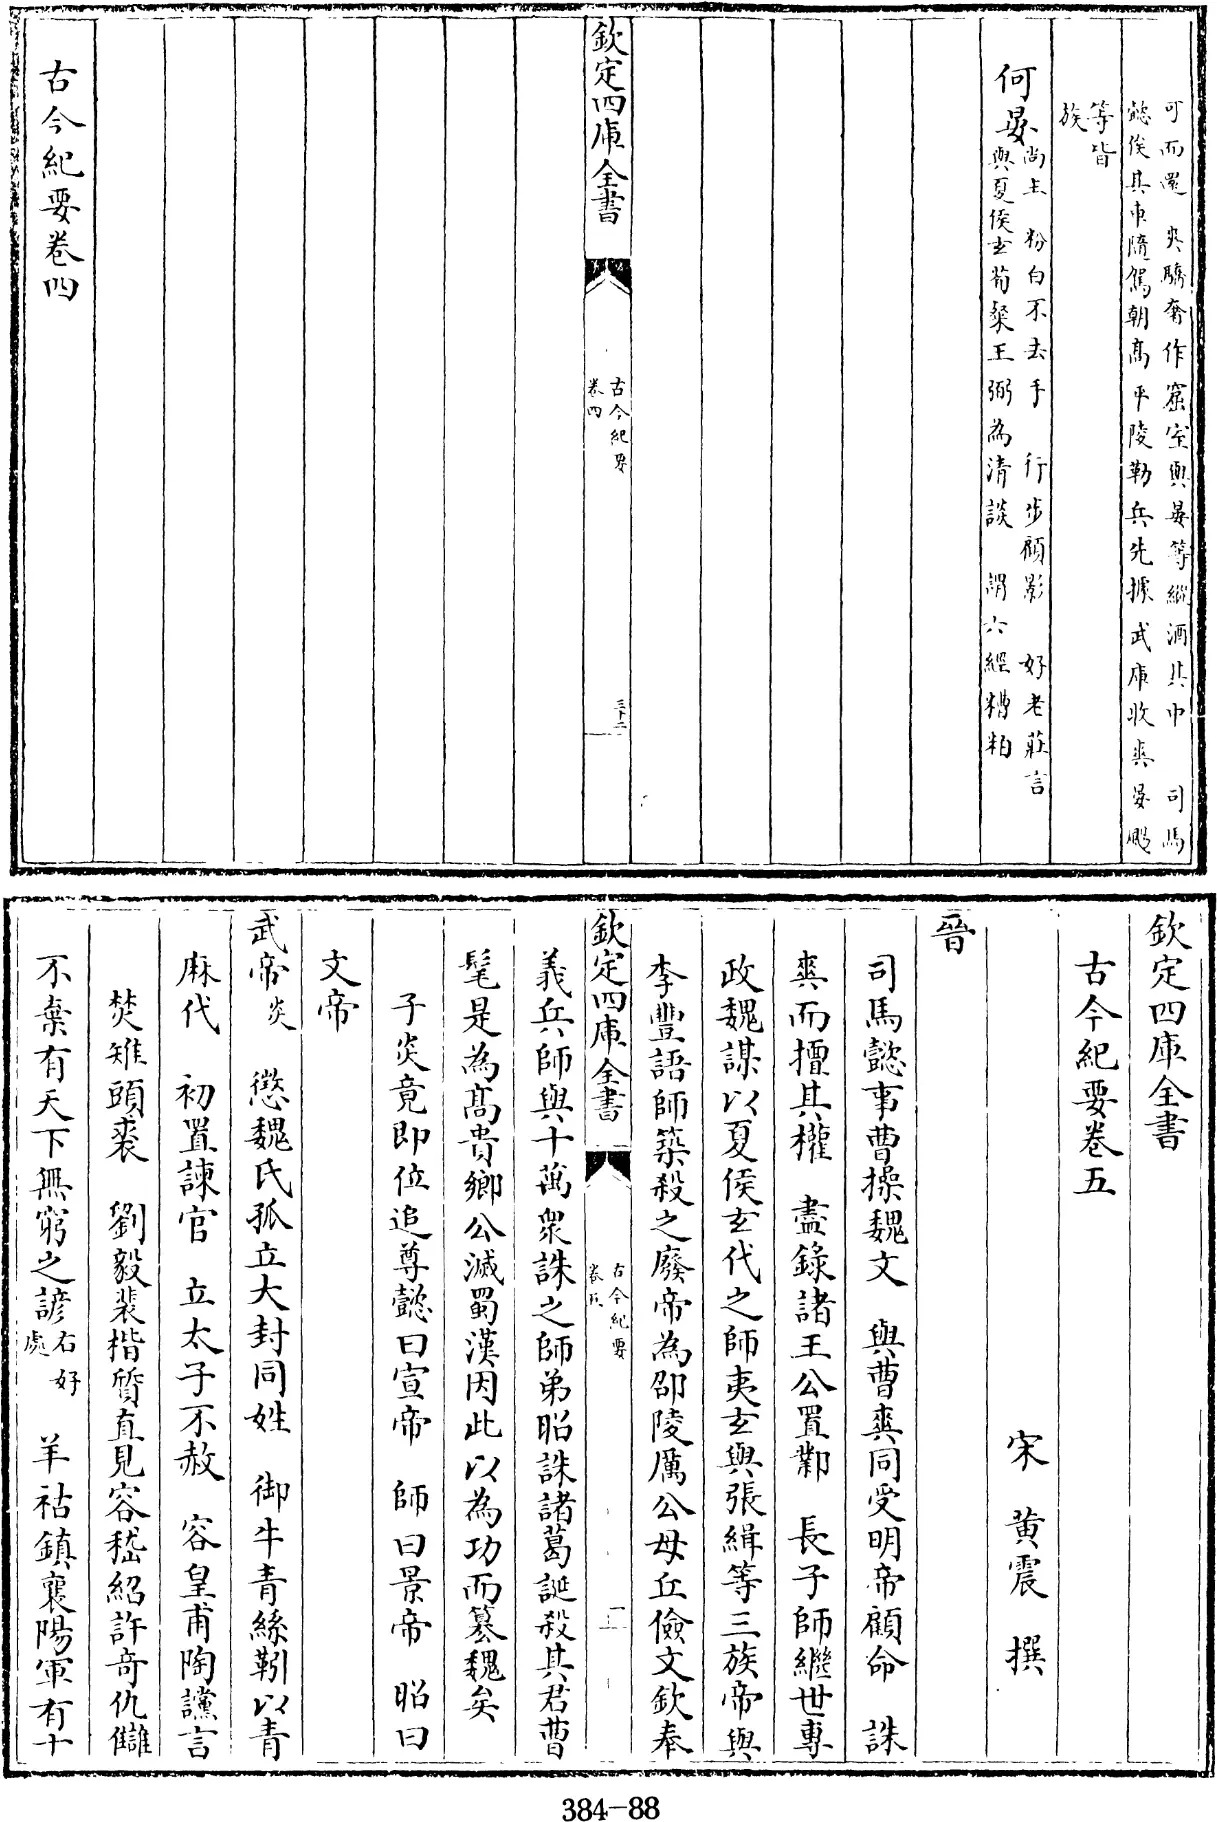 可而還 爽驕奢作窟室與晏等縱酒其中 司馬
懿俟其車隨駕朝高平陵勒兵先據武庫收爽晏颺
等皆
族
何晏
尚主 粉白不去手 行步顧影 好老莊言
與夏侯玄荀粲王弼為清談 謂六經糟粕
欽定四庫全書
古今紀要
卷四
三十二
古今紀要卷四
欽定四庫全書
古今紀要卷五
宋 黄震 撰
晉
司馬懿事曹操魏文 與曹爽同受明帝顧命 誅
爽而擅其權 盡錄諸王公置鄴 長子師繼世專
政魏謀以夏侯玄代之師夷玄與張緝等三族帝與
李豐語師築殺之廢帝為邵陵厲公母丘儉文欽奉
欽定四庫全書
古今紀要
卷五
一
義兵師與十萬衆誅之師弟昭誅諸葛誕殺其君曹
髦是為高貴鄉公滅蜀漢因此以為功而簒魏矣
子炎竟即位追尊懿曰宣帝 師曰景帝 昭曰
文帝
武帝炎 懲魏氏孤立大封同姓 御牛青絲靷以青
麻代 初置諫官 立太子不赦 容皇甫陶讜言
焚雉頭裘 劉毅裴楷質直見容嵇紹許奇仇讎
不棄有天下無窮之諺
右好
處
羊祜鎮襄陽軍有十
384-88